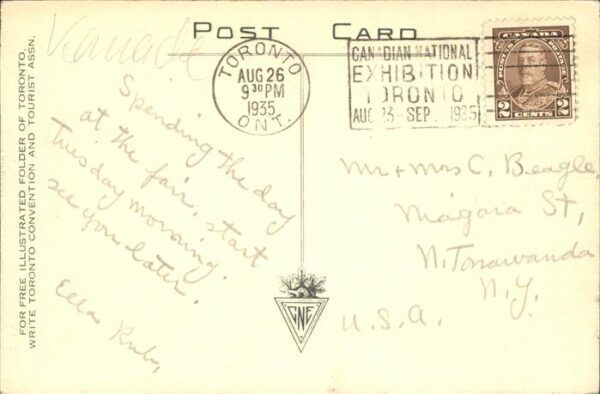 POST CARD
Kanada
TORONTO
AUG 26
9 30 PM
1935
ONT.
CANADIAN NATIONAL
EXHIBITION
TORONTO
AUG 23 - SEP. 1935
CANADA
POSTES POSTAGE
2 CENTS 2
FOR FREE ILLUSTRATED FOLDER OF TORONTO,
WRITE TORONTO CONVENTION AND TOURIST ASSN.
Spending the day
at the fair, start
Tuesday morning.
see you later.
Ella
CNE
Mr + Mrs C. Beagle,
Niagara St,
N. Tonawanda
N.Y.
U.S.A.